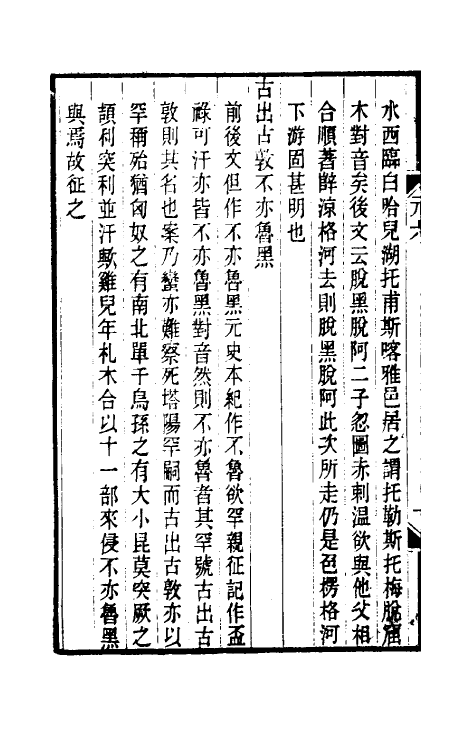 水西臨白哈兒湖托甫斯喀雅邑居之謂托勒斯托梅脫窟
木對音矣後文云脫黑脫阿二子忽圖赤剌溫欲與他父相
合順著薛涼格河去則脫黑脫阿此次所走仍是色楞格河
下游固甚明也
古出古敦不亦魯黑
前後文但作不亦魯黑元史本紀作不魯欲罕親征記作盃
祿可汗亦皆不亦魯黑對音然則不亦魯者其罕號古出古
敦則其名也案乃蠻亦難察死塔陽罕嗣而古出古敦亦以
罕稱殆猶匈奴之有南北單于烏孫之有大小昆莫突厥之
頡利突利並汗歟雞兒年札木合以十一部來侵不亦魯黑
與焉故征之
元六